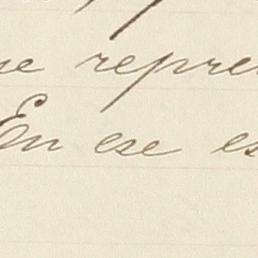 se repre
En ese es